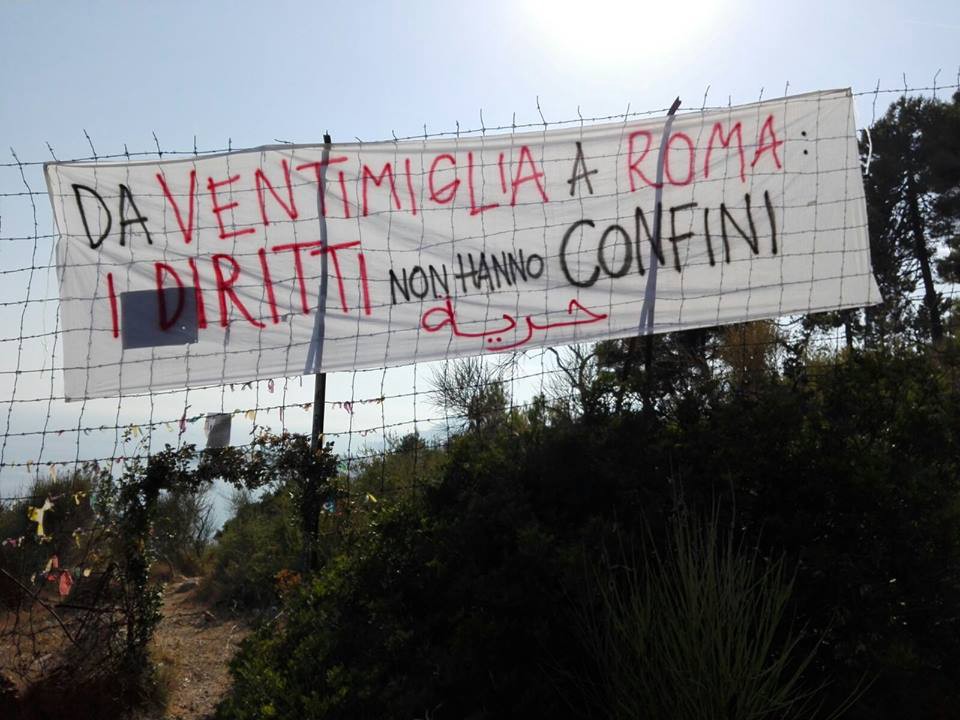 DA VENTIMIGLIA A ROMA:
I DIRITTI NON HANNO CONFINI
حريه